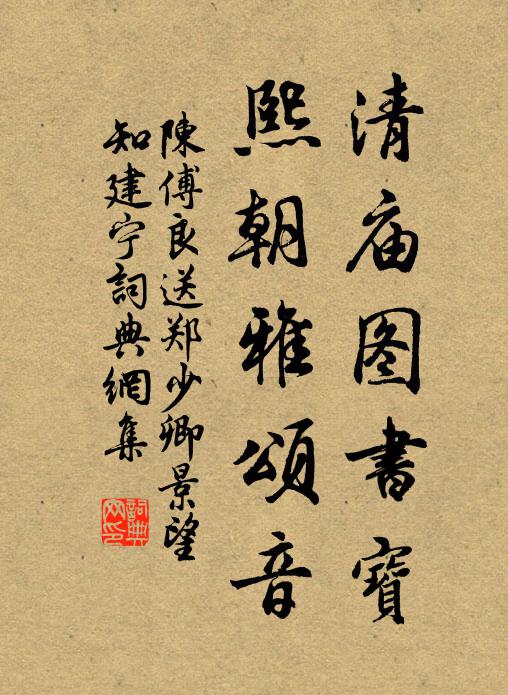 清庙图書寶
熙朝雅頌音
陳傅良送郑少卿景望
知建宁詞典網集
詞典網印